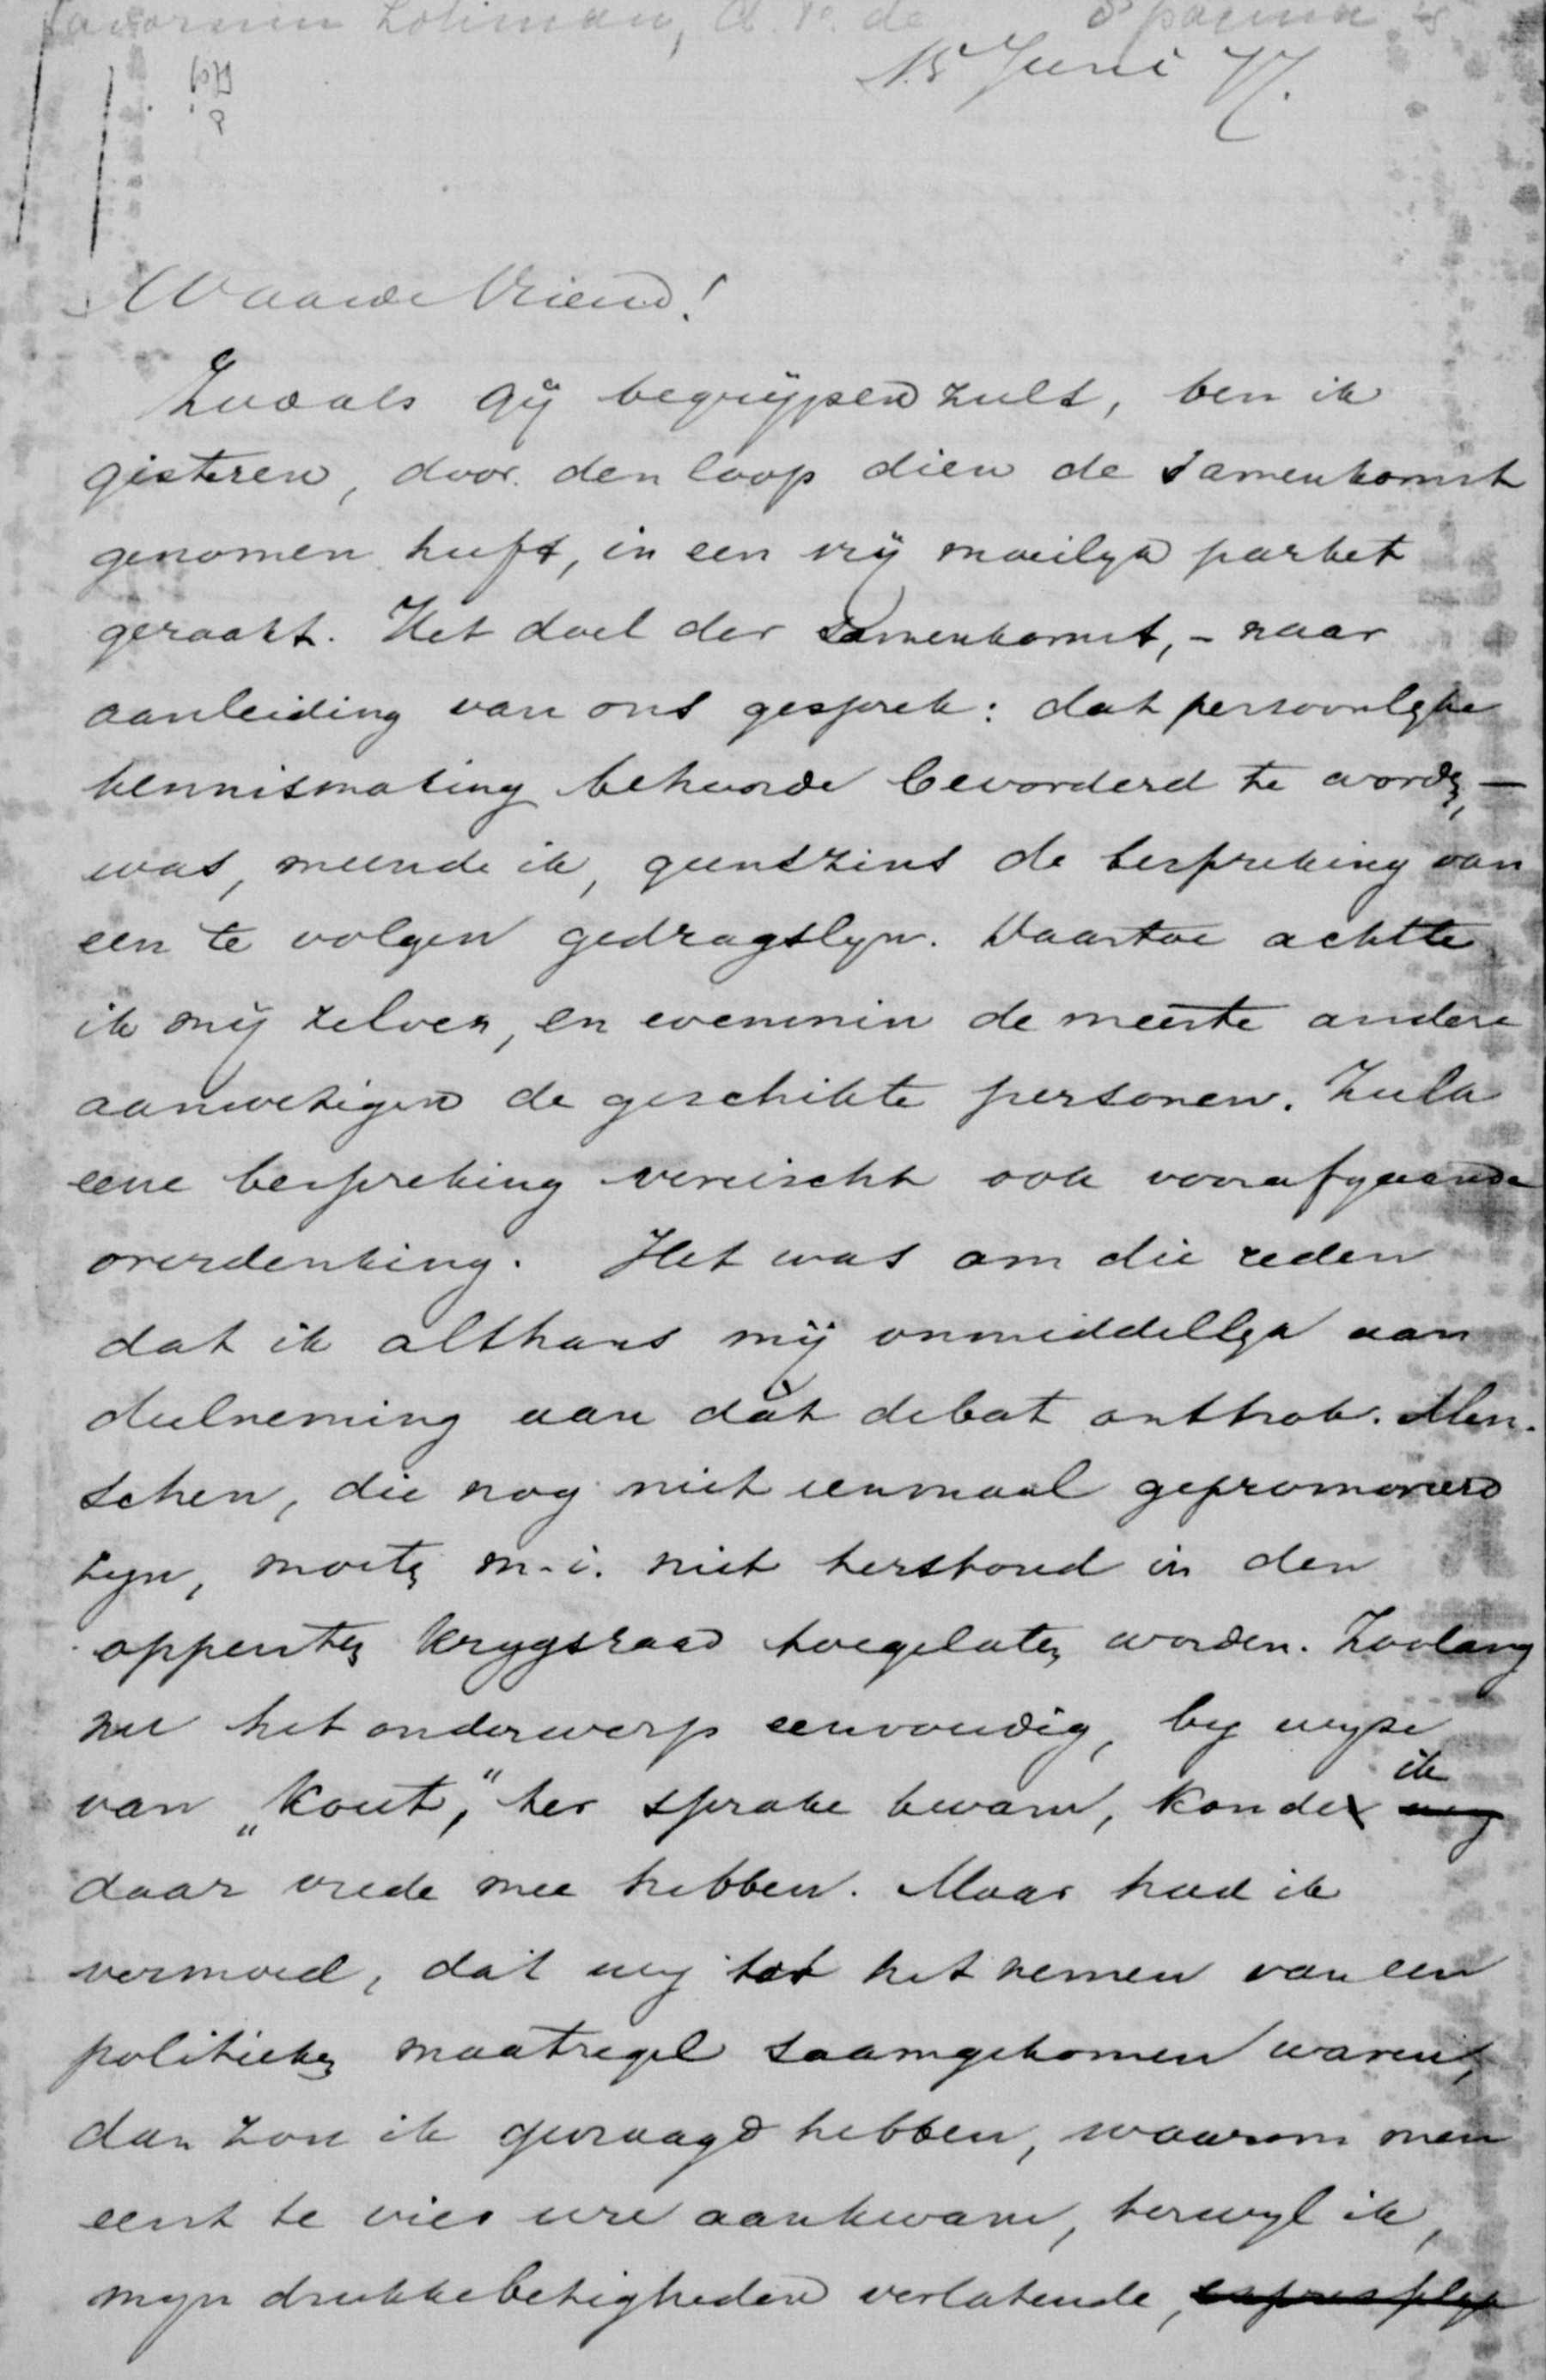 Savornin Lohman, A. F. de 8 pagina's
15 Juni 77.
Waarde Vriend!
Zooals gij begrijpen zult, ben ik
gisteren, door den loop dien de samenkomst
genomen heeft, in een vrij moeilyk parket
geraakt. Het doel der samenkomst, - naar
aanleiding van ons gesprek: dat persoonlyke
kennismaking behoorde bevorderd te worden, -
was, meende ik, geenszins de bespreking van
een te volgen gedragslyn. Daartoe achtte
ik mij zelven, en evenmin de meeste andere
aanwezigen de geschikte personen. Zulk
eene bespreking vereischt ook voorafgaande
overdenking. Het was om die reden
dat ik althans mij onmiddellyk aan
deelneming aan dàt debat onttrok. Men-
schen, die nog niet eenmaal gepromoveerd
zyn, moeten m.i. niet terstond in den
oppersten krygsraad toegelaten worden. Zoolang
nu het onderwerp eenvoudig, by wyze
van „kout," ter sprake kwam, konde ik
daar vrede mee hebben. Maar had ik
vermoed, dat wy tot het nemen van een
politieken maatregel saamgekomen waren,
dan zou ik gevraagd hebben, waarom men
eerst te vier ure aankwam, terwyl ik,
myn drukke bezigheden verlatende,